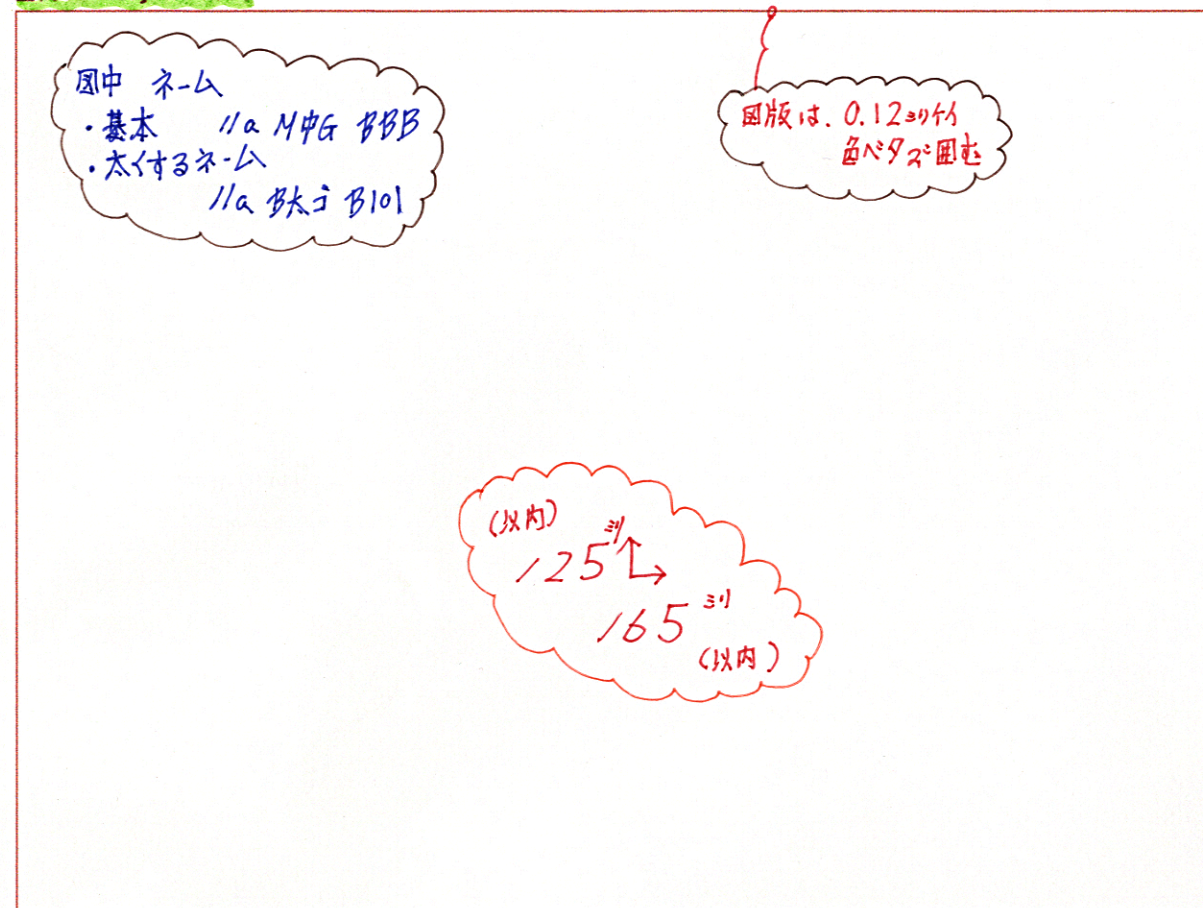 図中 ネーム
・基本 11a M中G BBB
・太くするネーム
11a B太ゴ B101
図版は、0.12ミリケイ
色ベタで囲む
(以内)
125ミリ
165ミリ
(以内)